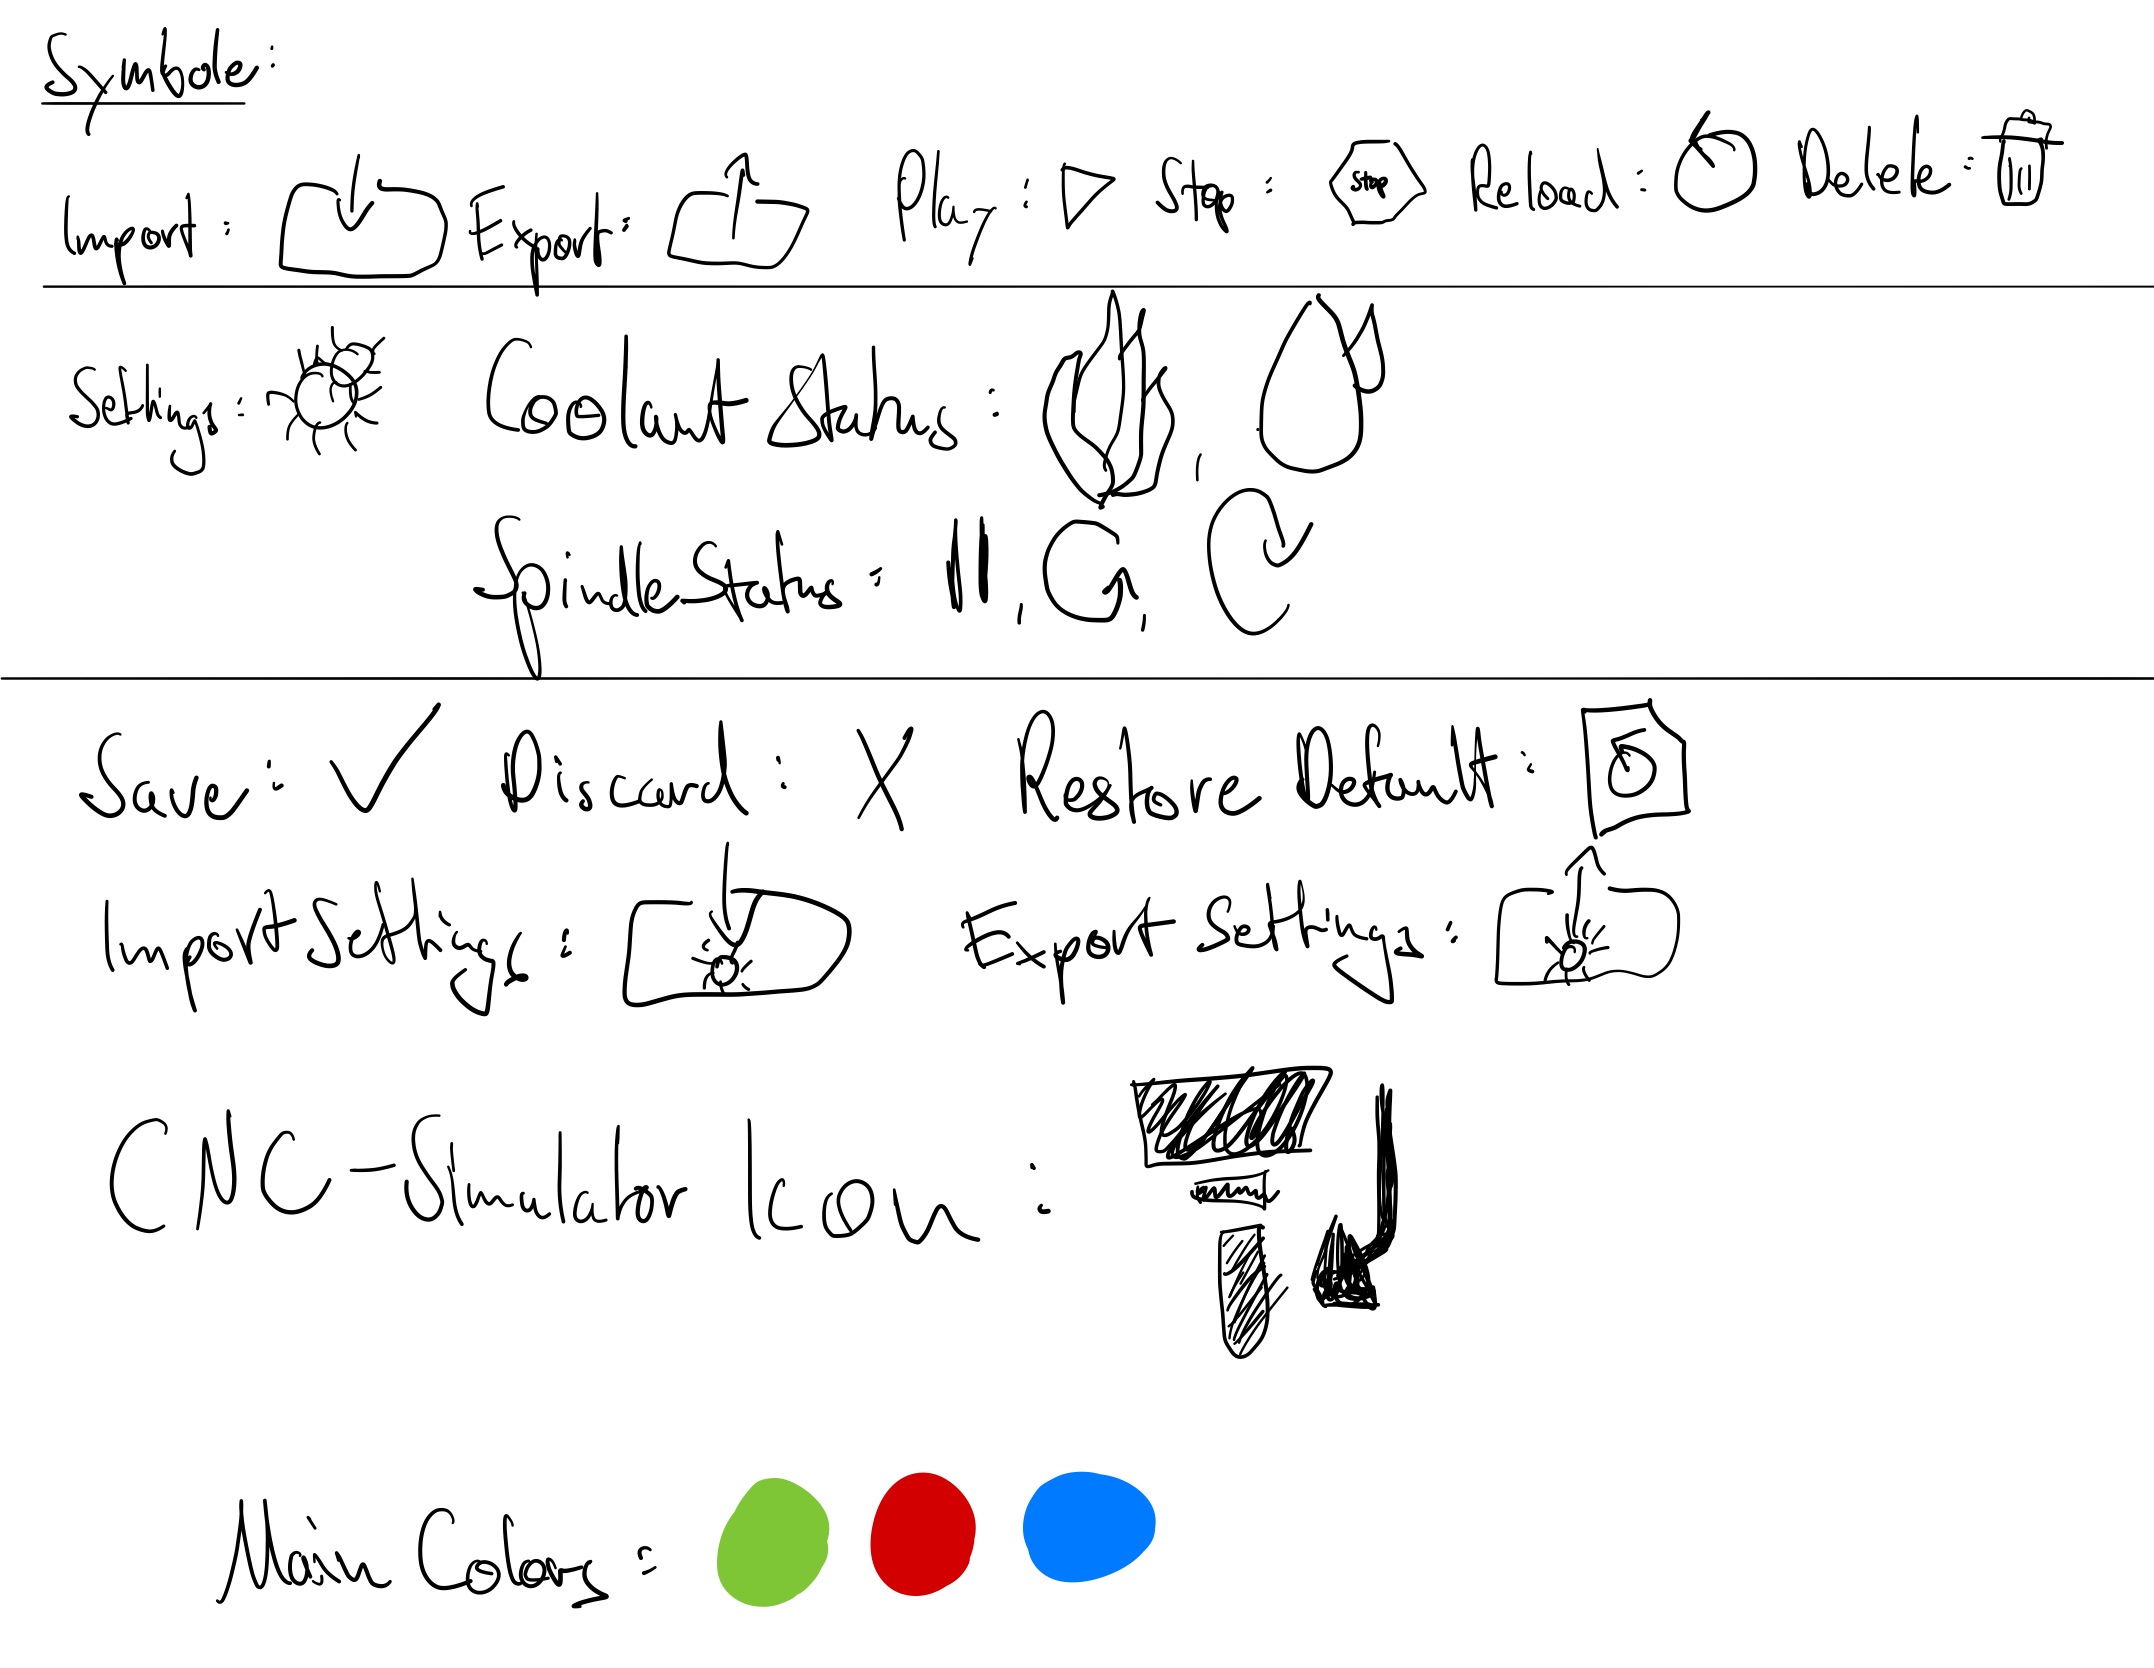 Symbole:
Import: Export: Play: Stop: Stop Reload: Delete:
Settings: Coolant Status: ,
Spindle Status: , ,
Save: Discard: Restore Default:
Import Settings: Export Settings:
CNC-Simulator Icon:
Main Colors: